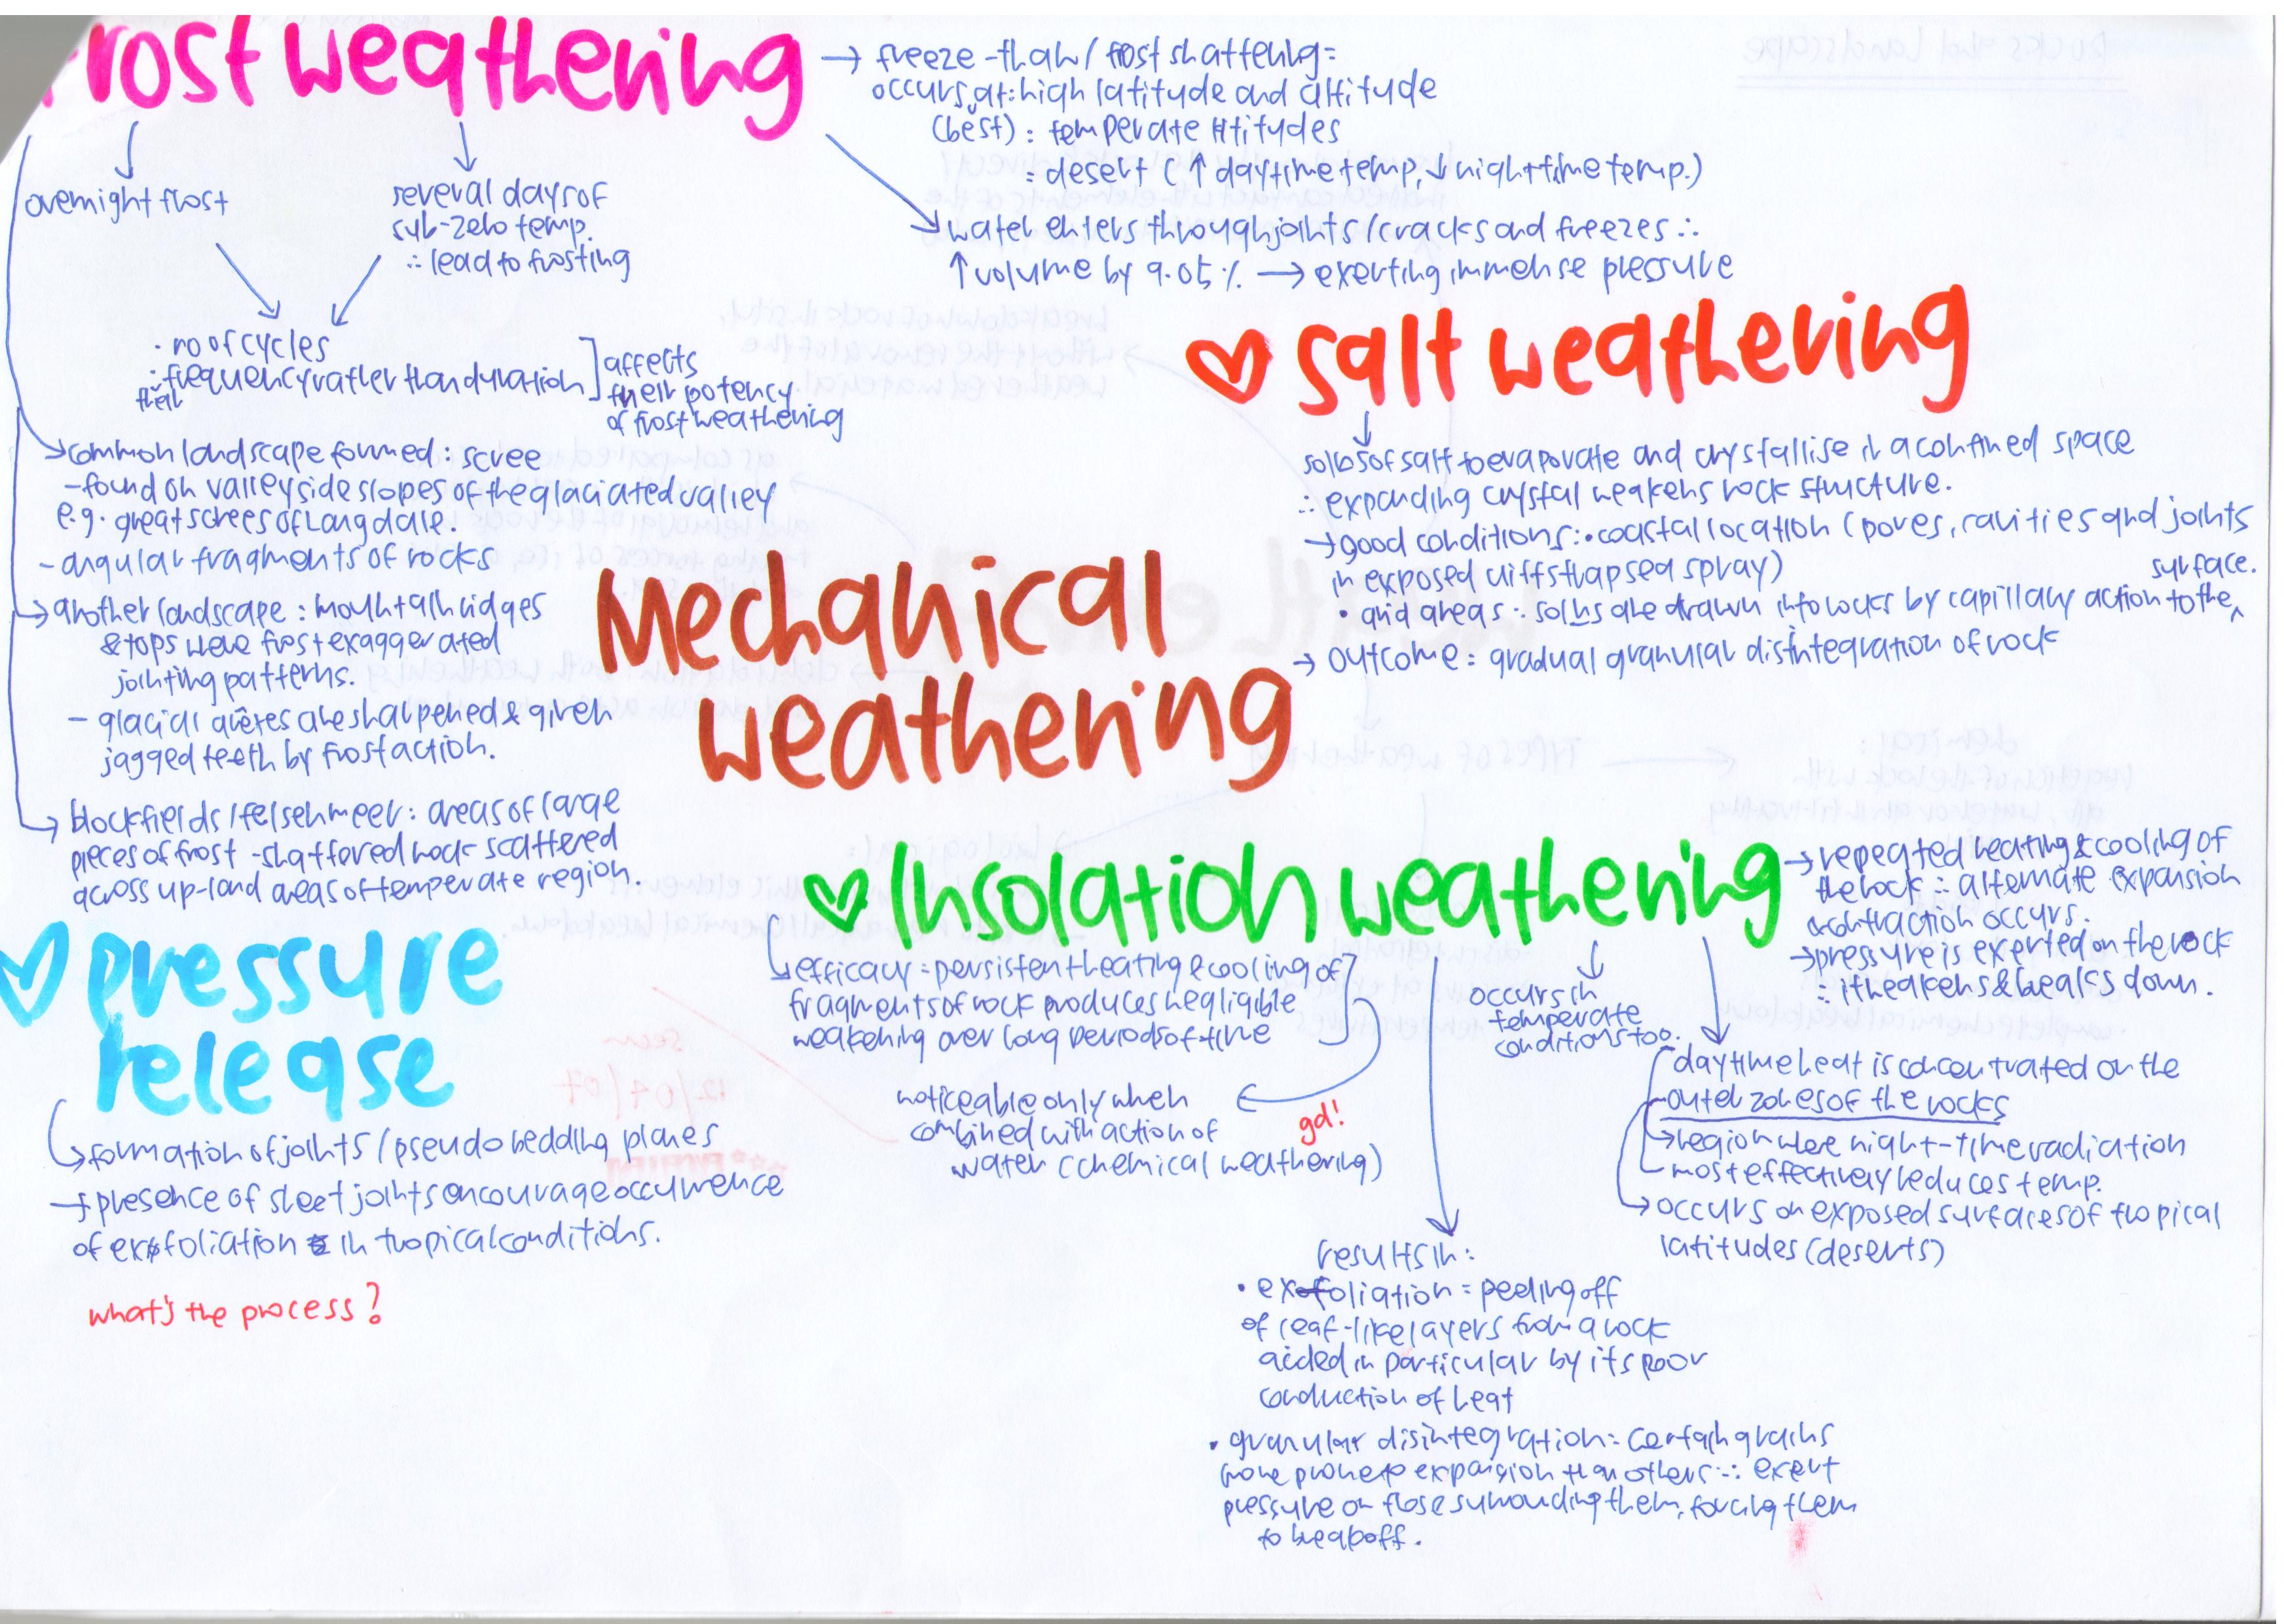 frost weathering
→ freeze-thaw / frost shattering =
occurs at: high latitude and altitude
(best) : temperate latitudes
: desert (↑ daytime temp, ↓ night time temp.)
→ water enters through joints / cracks and freezes ∴
↑ volume by 9.05 % → exerting immense pressure
overnight frost
several days of
sub-zero temp.
∴ lead to frosting
· no of cycles
· frequency rather than duration
their
affects
their potency
of frost weathering
→ common landscape formed : scree
- found on valley side slopes of the glaciated valley
e.g. great screes of Langdale.
- angular fragments of rocks
→ another landscape : mountain ridges
& tops were frost exaggerated
jointing patterns.
- glacial arêtes are sharpened & given
jagged teeth by frost action.
→ blockfields / felsenmeer : areas of large
pieces of frost-shattered rock scattered
across up-land areas of temperate region.
♡ salt weathering
solns of salt to evaporate and crystallise in a confined space
∴ expanding crystal weakens rock structure.
→ good conditions : • coastal location (pores, cavities and joints
in exposed cliffs trap sea spray)
• arid areas : solns are drawn into rocks by capillary action to the surface.
→ outcome : gradual granular disintegration of rock
Mechanical
weathering
♡ Insolation weathering
→ repeated heating & cooling of
the rock ∴ alternate expansion
contraction occurs.
→ pressure is exerted on the rock
∴ it weakens & breaks down.
→ efficacy : persistent heating & cooling of
fragments of rock produces negligible
weakening over long periods of time
noticeable only when
combined with action of
water (chemical weathering)
gd!
occurs in
temperate
conditions too.
daytime heat is concentrated on the
outer zones of the rocks
→ region where night-time radiation
most effectively reduces temp.
→ occurs on exposed surfaces of tropical
latitudes (deserts)
results in :
• exfoliation = peeling off
of leaf-like layers from a rock
aided in particular by its poor
conduction of heat
• granular disintegration : certain grains
more prone to expansion than others ∴ exert
pressure on those surrounding them, forcing them
to break off.
♡ pressure
release
→ formation of joints / pseudo bedding planes
→ presence of sheet joints encourage occurrence
of exfoliation in tropical conditions.
what's the process?